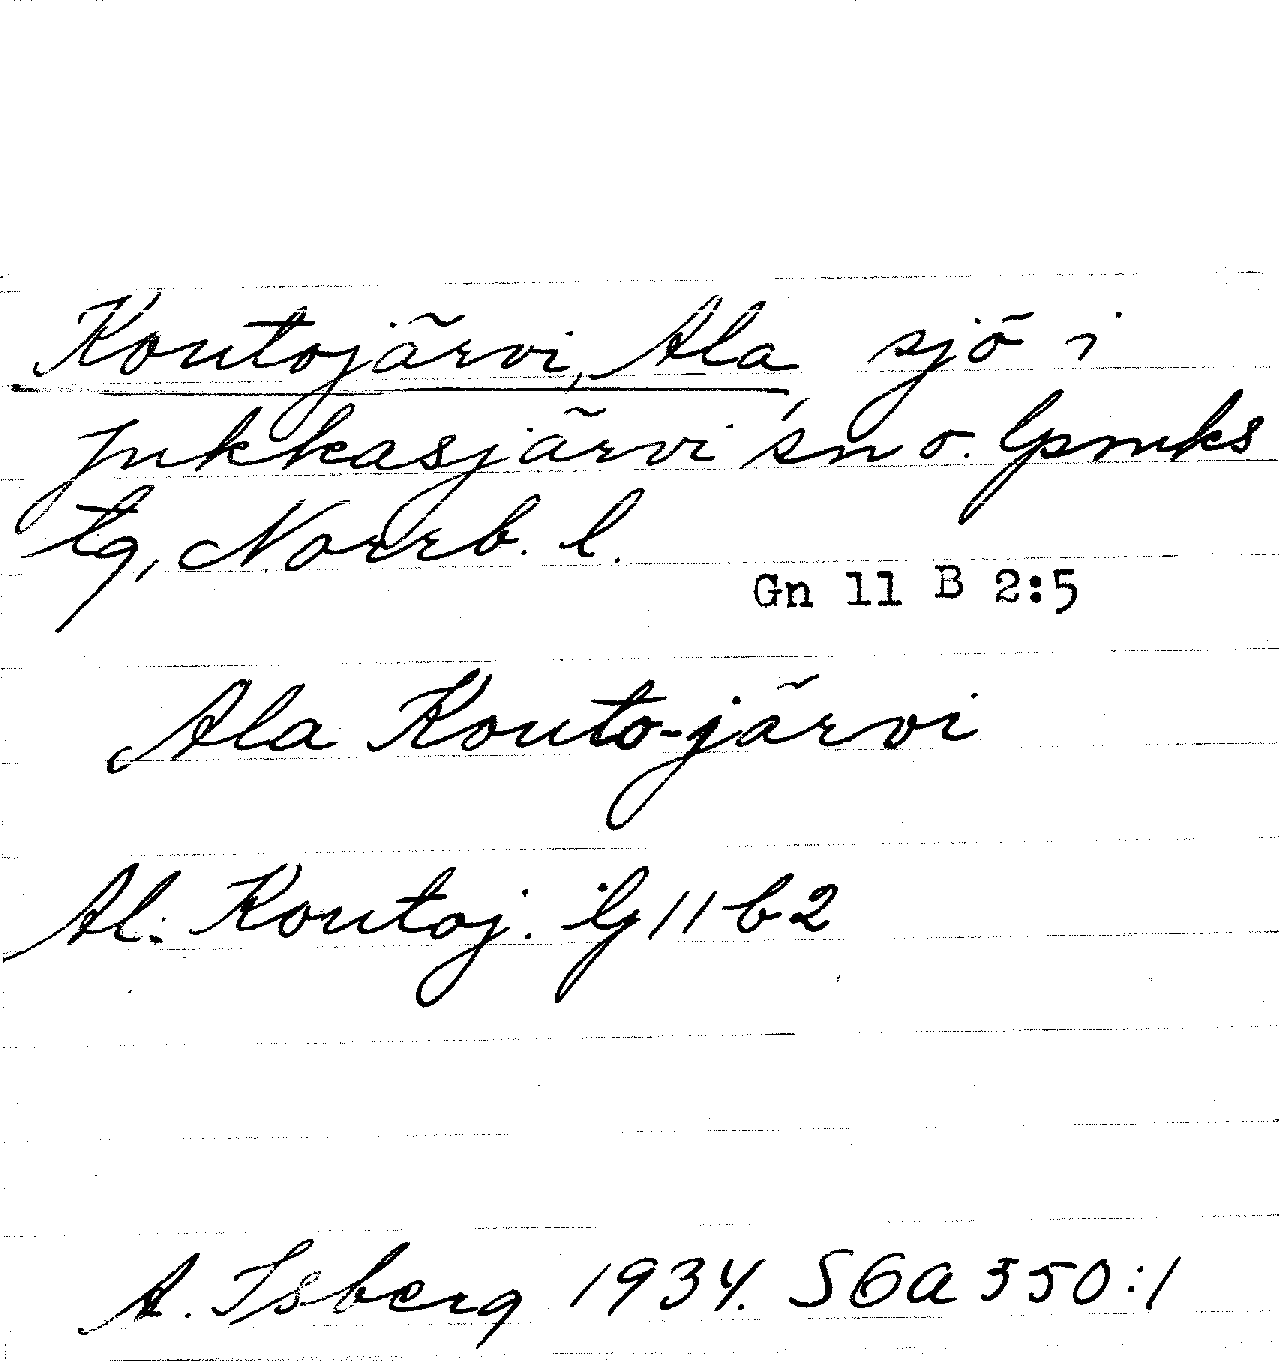 Koutojärvi, Ala, sjö i
Jukkasjärvi sn o. lpmks
tg, Norrb. l.
Gn 11 B 2:5
Ala Kouto-järvi
Al. Koutoj. ig 11 b 2
A. Isberg 1934. SGA 350:1